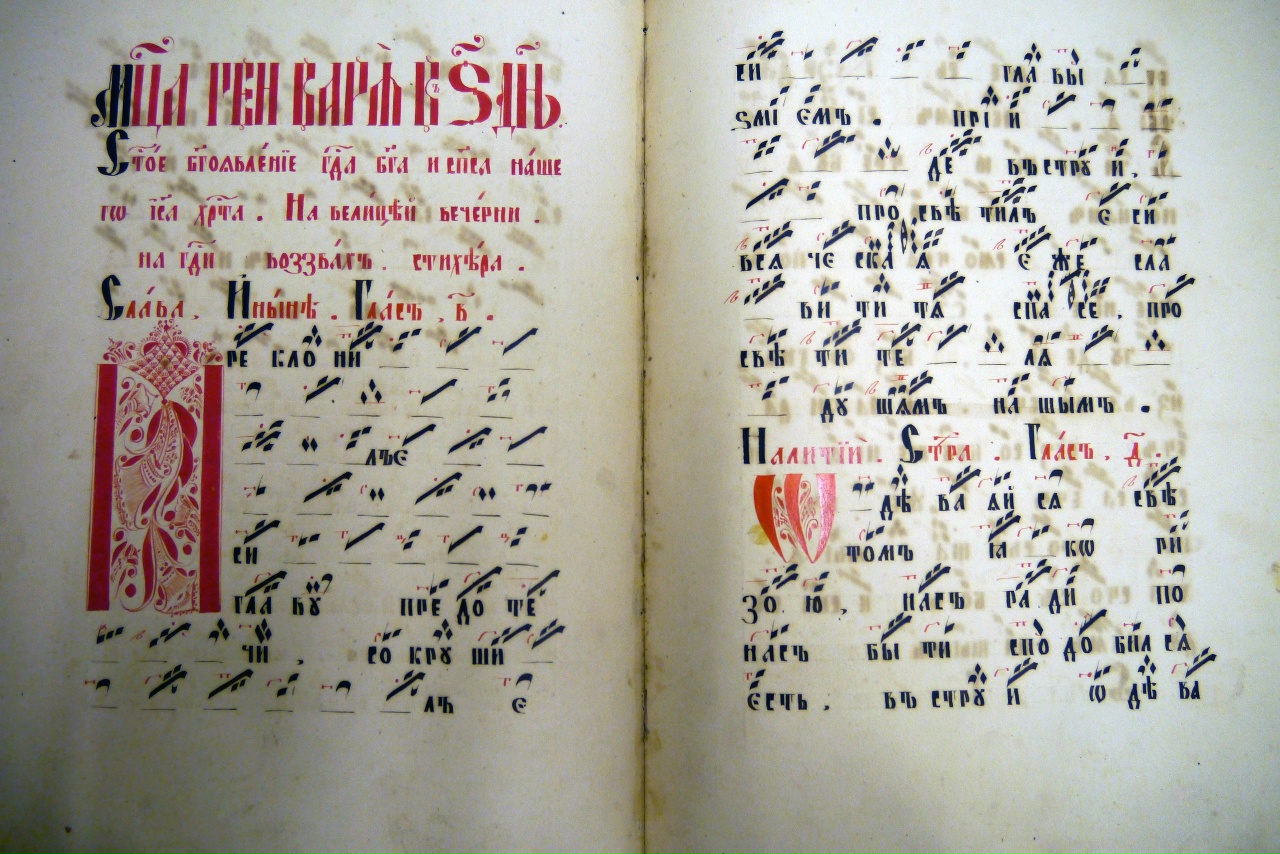 Мц҃а генваря въ ѕ҃ дн҃ь.
Ст҃ое бг҃оявле́нїе гд҃а бг҃а и сп҃са на́ше
гѡ і҆с҃а хр҃та̀. На вели́цѣй вече́рни.
на гд҃и воззва́хъ. стихѣ́ра.
Сла́ва, И҆ ны́нѣ. Гла́съ, в҃.
Пре кло ни
лъ е
си
гла вꙋ пре до те
чи, со крꙋ ши
лъ е
си гла вы
ѕмі емъ. прі и
де въ стрꙋ и,
про свѣ тилъ е си
вся че ска я е же сла
ви ти тя спа се, про
свѣ ти те ля
дꙋ шамъ на шымъ.
На литі́и. Стр҃а. Гла́съ, д҃.
Ѡ дѣ ва яй ся свѣ
томъ ꙗ ко ри
зо ю, насъ ра ди по
насъ бы ти спо до бил ся
есть, въ стрꙋ и ѡ дѣ ва